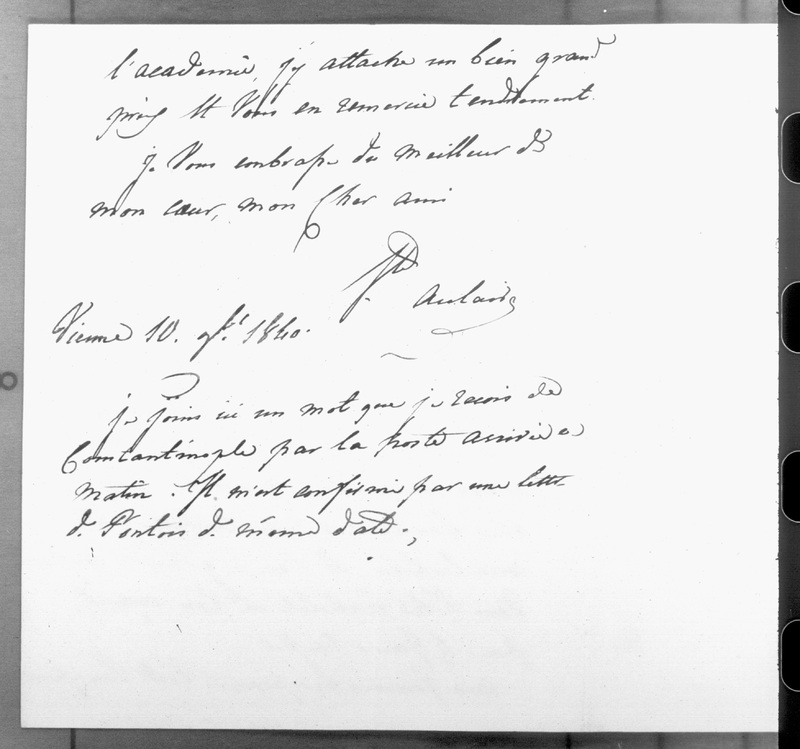 l'académie, j'y attache un bien grand
prix et Vous en remercie tendrement.
je Vous embrasse du meilleur de
mon cœur, mon Cher ami
Ste Aulaire
Vienne 10. 9bre. 1840.
je joins ici un mot que je reçois de
Constantinople par la poste arrivée ce
matin. Il m'est confirmé par une lettre
de Pontois de même date.